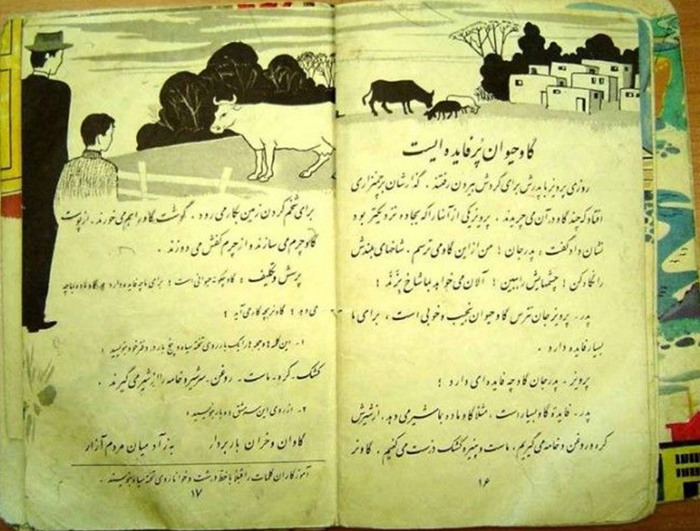 گاو حیوان پُر فایده ایست
روزی پرویز با پدرش برای گردش بیرون رفتند . گذارشان بر چمنزاری
افتاد که چند گاو در آن می چریدند . پرویز یکی از آنها را که بجاده نزدیکتر بود
نشان داد و گفت : پدر جان ! من از این گاو می ترسم . شاخهای بلندش
را نگاه کن ! چشمهایش را ببین ! الآن می خواهد بما شاخ بزند !
پدر - پرویز جان نترس گاو حیوان نجیب و خوبی است ، برای ما
بسیار فایده دارد .
پرویز - پدر جان گاو چه فایده ای دارد ؟
پدر - فایدهٔ گاو بسیار است ، مثلا گاو ماده بما شیر می دهد . از شیرش
کره و روغن و خامه می گیریم ، ماست و پنیر و کشک درست می کنیم . گاو نر
۱۶
برای شخم کردن زمین بکار می رود . گوشت گاو را هم می خورند . از پوست
گاو چرم می سازند و از چرم کفش می دوزند .
پرسش و تکلیف : گاو چگونه حیوانی است ؟ برای ما چه فایده دارد ؟ گاو ماده بما چه
می دهد ؟ گاو نر بچه کار می آید ؟
۱- این کلمه ها و جمله ها را یک بار روی تخته سیاه و پنج بار در دفتر خود بنویسید :
کشک - کره - ماست - روغن - سرشیر و خامه را از شیر می گیرند .
۲- از روی این سرمشق دو بار بنویسید :
گاوان و خران باربردار به ز آدمیان مردم آزار
آموزگاران کلمات را قبلاً با خط درشت و خوانا روی تخته سیاه بنویسند .
۱۷